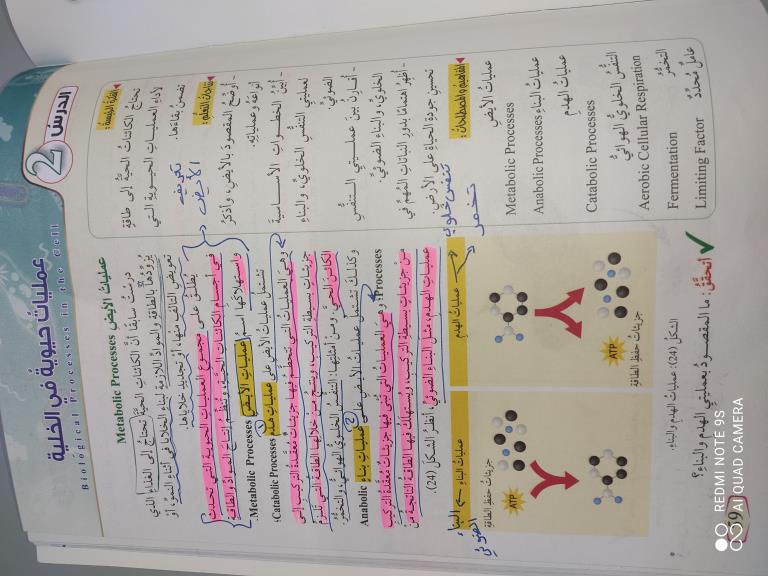 الدرس 2
عمليات حيوية في الخلية
Biological Processes in the Cell
الفكرة الرئيسة:
تحتاج الكائنات الحية إلى طاقة
لأداء العمليات الحيوية التي
تضمن بقاءها.
نتاجات التعلم:
- أوضح المقصود بالأيض، وأذكر
أنواعه وعملياته.
- أبين الخطوات الأساسية
لعمليتي التنفس الخلوي، والبناء
الضوئي.
- أقارن بين عمليتي التنفس
الخلوي، والبناء الضوئي.
- أظهر اهتماما بدور النباتات المهم في
تحسين جودة الحياة على الأرض.
المفاهيم والمصطلحات:
عمليات الأيض
Metabolic Processes
عمليات البناء Anabolic Processes
عمليات الهدم
Catabolic Processes
التنفس الخلوي الهوائي
Aerobic Cellular Respiration
التخمر
Fermentation
عامل محدد
Limiting Factor
عمليات الأيض Metabolic Processes
درست سابقا أن الكائنات الحية تحتاج إلى الغذاء الذي
يزودها بالطاقة والمواد اللازمة لبناء الخلايا في أثناء النمو، أو
تعويض التالف منها، أو تجديد خلاياها.
يطلق على مجموع العمليات الكيميائية التي تحدث
في أجسام الكائنات الحية، وتنظم إنتاج المواد والطاقة
واستهلاكها اسم عمليات الأيض Metabolic Processes.
تشتمل عمليات الأيض على عمليات هدم
Catabolic Processes؛
وهي العمليات التي تتحطم فيها جزيئات معقدة التركيب إلى
جزيئات بسيطة التركيب، وينتج من خلالها الطاقة التي تلزم
الكائن الحي. ومن أمثلتها: التنفس الخلوي الهوائي، والتخمر.
وكذلك تشتمل عمليات الأيض على عمليات بناء Anabolic
Processes؛ وهي العمليات التي تبنى فيها جزيئات معقدة التركيب
من جزيئات بسيطة التركيب، ويستهلك فيها الطاقة الناتجة من
عمليات الهدم، مثل البناء الضوئي، أنظر الشكل (24).
الأيض
تعريف
تنفس خلوي
تخمر
البناء
الضوئي
عمليات الهدم
جزيئات حفظ الطاقة
ATP
عمليات البناء
جزيئات حفظ الطاقة
ATP
الشكل (24): عمليات الهدم والبناء.
أتحقق: ما المقصود بعمليتي الهدم والبناء؟
59
REDMI NOTE 9S
AI QUAD CAMERA